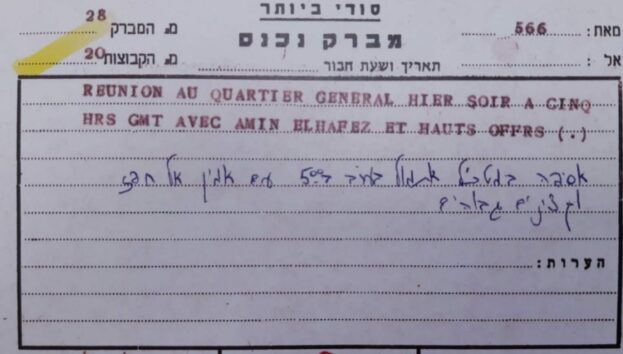 סודי ביותר
מברק נכנס
מאת: 566
מ. המברק 28
אל:
תאריך ושעת חבור
מ. הקבוצות 20
REUNION AU QUARTIER GENERAL HIER SOIR A CINQ
HRS GMT AVEC AMIN ELHAFEZ ET HAUTS OFFRS (.)
אסיפה במטכ"ל אתמול בערב ב-500 עם אמין אל חפז
וקצינים גבוהים
הערות: